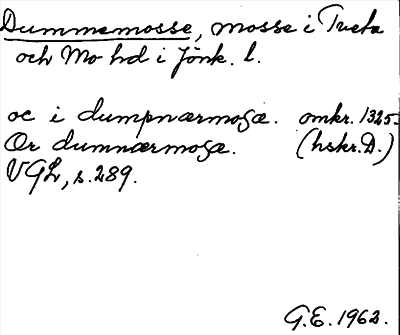 Dummemosse, mosse i Tveta
och Mo hd i Jönk. l.
oc i dumpnærmosæ. omkr. 1325.
Or dumnærmosæ. (hskr. D.)
VGL, s. 289.
G.E. 1962.